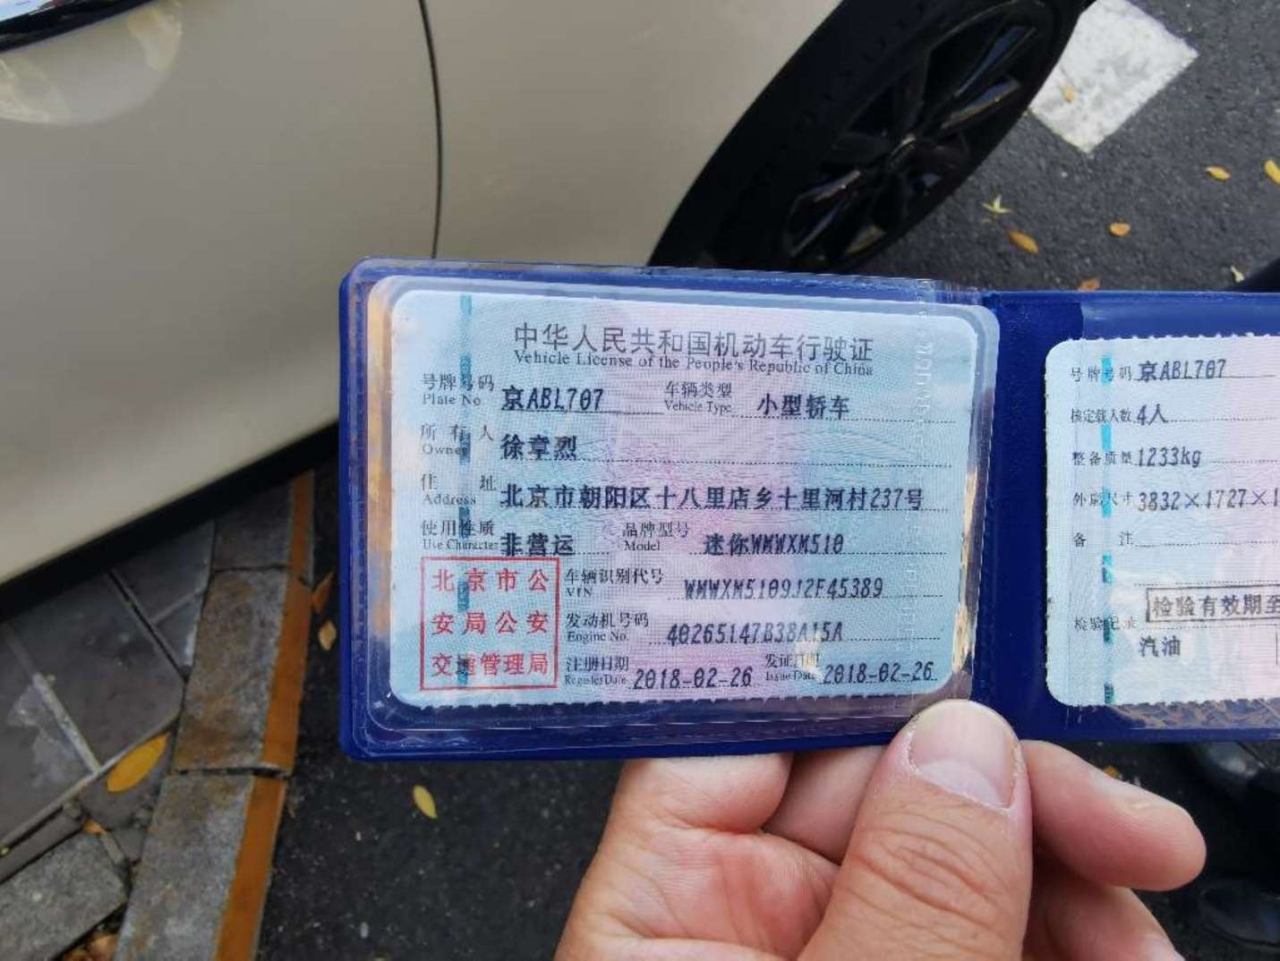 中华人民共和国机动车行驶证
Vehicle License of the People's Republic of China
号牌号码 Plate No. 京ABL707 车辆类型 Vehicle Type 小型轿车
所有人 Owner 徐章烈
住址 Address 北京市朝阳区十八里店乡十里河村237号
使用性质 Use Character 非营运 品牌型号 Model 迷你WMWXM510
北京市公安局公安交通管理局
车辆识别代号 VIN WMWXM5109J2F45389
发动机号码 Engine No. 40265147B38A15A
注册日期 Register Date 2018-02-26 发证日期 Issue Date 2018-02-26
号牌号码 京ABL707
核定载人数 4人
整备质量 1233kg
外廓尺寸 3832×1727×1
备注
检验有效期至
检验记录
汽油